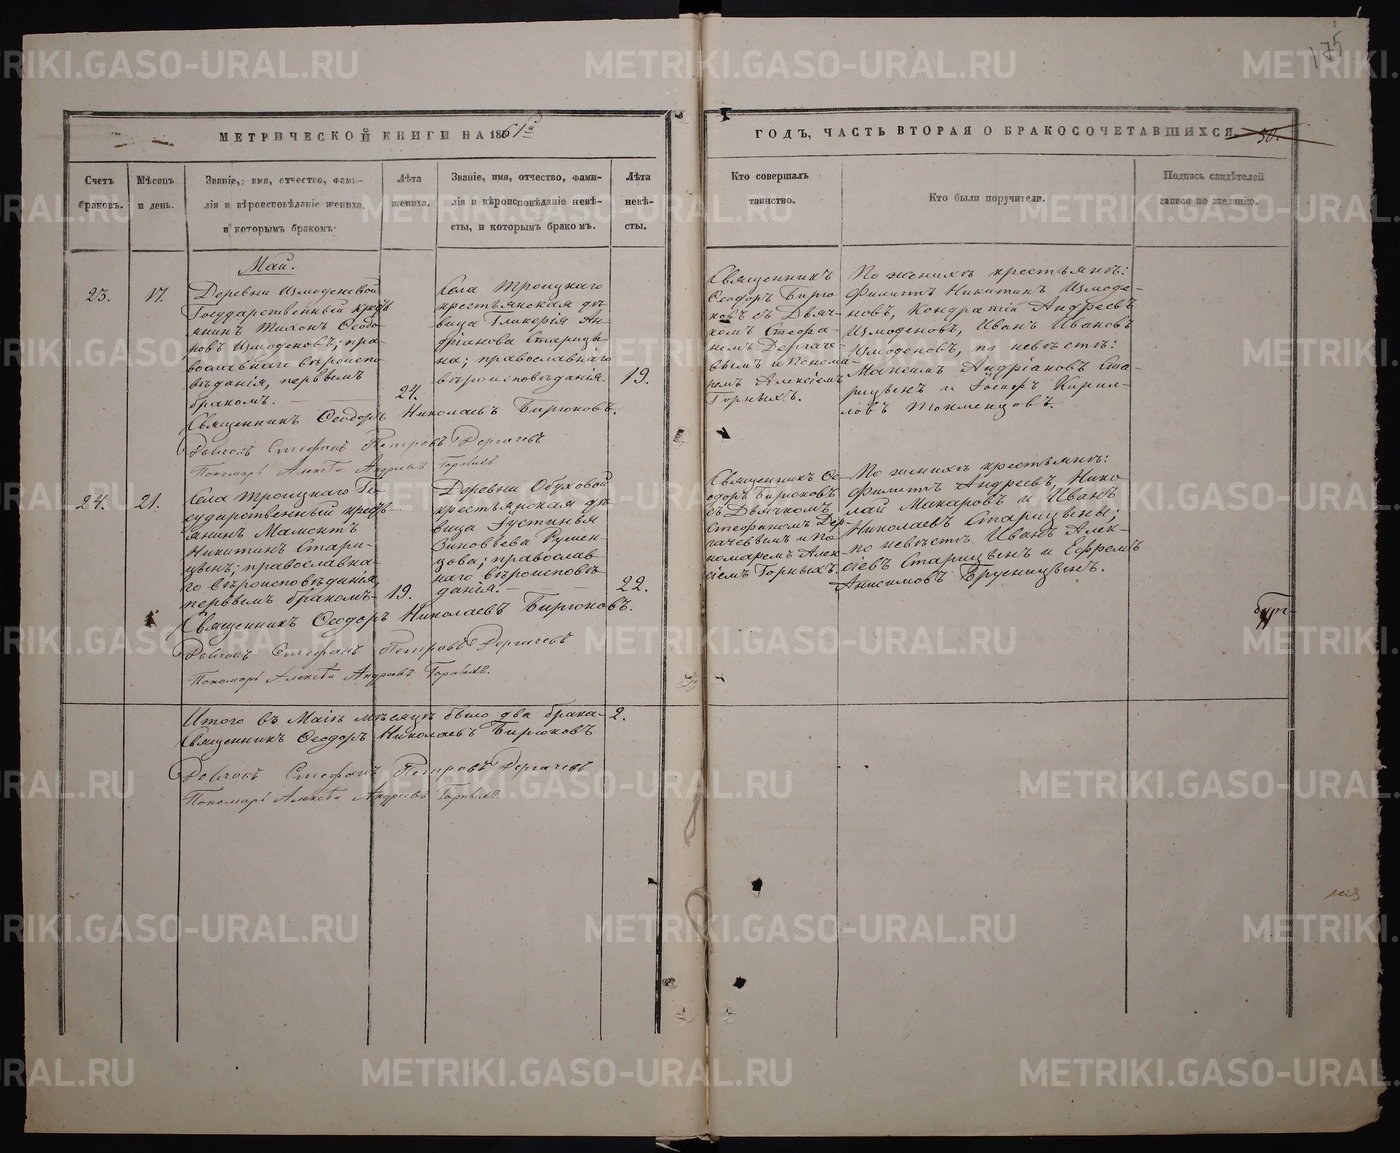 175
МЕТРИЧЕСКОЙ КНИГИ НА 1861й
ГОДЪ, ЧАСТЬ ВТОРАЯ О БРАКОСОЧЕТАВШИХСЯ.
30.
Счетъ браковъ.
Мѣсяцъ и день.
Званіе, имя, отчество, фами-
лія и вѣроисповѣданіе жениха,
и которымъ бракомъ.
Лѣта жениха.
Званіе, имя, отчество, фами-
лія и вѣроисповѣданіе невѣ-
сты, и которымъ бракомъ.
Лѣта невѣ-
сты.
Кто совершалъ
таинство.
Кто были поручители.
Подпись свидѣтелей
записи по желанію.
Май.
23.
17.
Деревни Измоденовой
Государственный кресть
янинъ Тихонъ Ѳеодо-
ровъ Измоденовъ, пра-
вославнаго вѣроиспо
вѣданія, первымъ
бракомъ.
24.
Села Троицкаго
крестьянская дѣ
вица Гликерія Ан-
дріанова Старицы-
на; православнаго
вѣроисповѣданія.
19.
Священникъ
Ѳеодоръ Бирю
ковъ съ Дьяч-
комъ Стефа-
номъ Дергаче-
вымъ и Понома-
ремъ Алексіемъ
Горныхъ.
По женихѣ крестьяне:
Филиппъ Никитинъ Измоде-
новъ, Кондратій Андреевъ
Измоденовъ, Иванъ Ивановъ
Измоденовъ, по невѣстѣ:
Максимъ Андріановъ Ста-
рицынъ и Іосифъ Кирил-
ловъ Токменцовъ.
Священникъ Ѳеодоръ Николаевъ Бирюковъ.
Дьячокъ Стефанъ Петровъ Дергачевъ
Пономарь Алексѣй Андреевъ Горныхъ
24.
21.
Села Троицкаго Го-
сударственный кресть-
янинъ Мамонтъ
Никитинъ Стари-
цынъ; православна-
го вѣроисповѣданія,
первымъ бракомъ
19.
Деревни Обуховой
крестьянская дѣ
вица Іустинья
Зиновьева Румян
цова; православ
наго вѣроисповѣ
данія.
22.
Священникъ Ѳе-
одоръ Бирюковъ
съ Дьячкомъ
Стефаномъ Дер-
гачевымъ и По
номаремъ Алек-
сіемъ Горныхъ.
По женихѣ крестьяне:
Филиппъ Андреевъ, Нико
лай Макаровъ и Иванъ
Николаевъ Старицыны;
по невѣстѣ Иванъ Алек-
сіевъ Старицынъ и Ефремъ
Анисимовъ Брусницынъ.
Священникъ Ѳеодоръ Николаевъ Бирюковъ.
Дьячокъ Стефанъ Петровъ Дергачевъ
Пономарь Алексѣй Андреевъ Горныхъ.
Итого въ Маіѣ мѣсяцѣ было два брака - 2.
Священникъ Ѳеодоръ Николаевъ Бирюковъ
Дьячокъ Стефанъ Петровъ Дергачевъ
Пономарь Алексѣй Андреевъ Горныхъ
METRIKI.GASO-URAL.RU